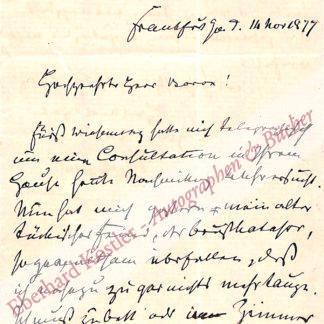 Frankfurt a. d. 14 Nov 1877
Hochgeehrter Herr Baron!
Fürst hatte mich telegraphisch
um eine Consultation in Ihrem
Hause heute Nachmittag ersucht.
Nun hat mich gestern mein alter
tückischer Feind, der Brustkatarrh,
so überfallen, daß
ich zu gar nichts mehr tauge.
Ich muß zu Bett oder im Zimmer
Eberhard Köstler Autographen & Bücher